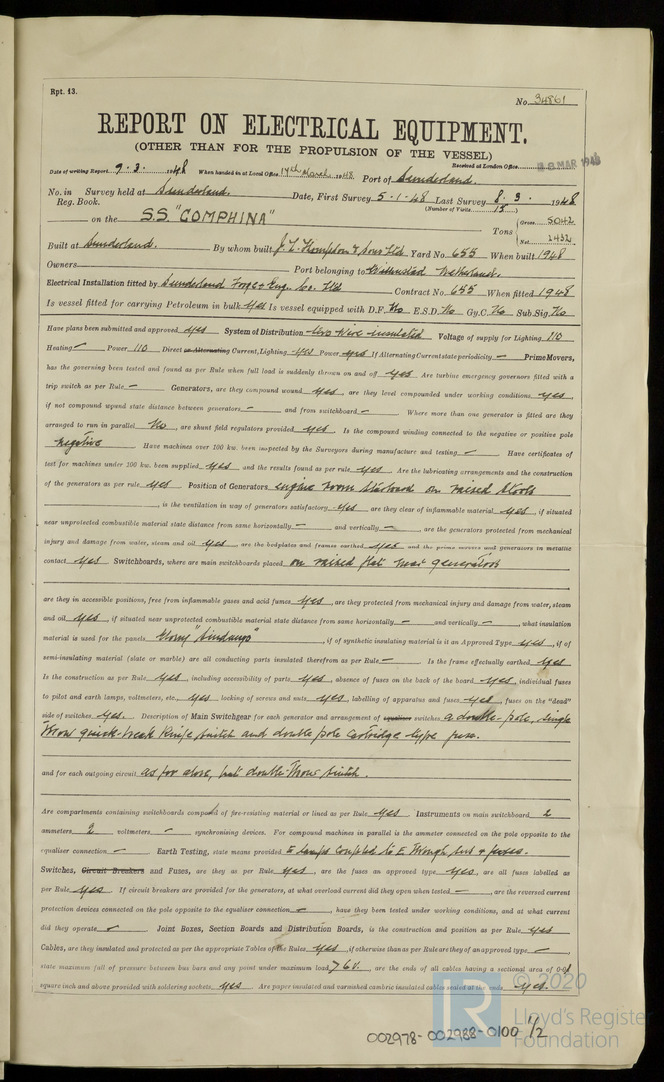 Rpt. 13.
No. 34861
REPORT ON ELECTRICAL EQUIPMENT.
(OTHER THAN FOR THE PROPULSION OF THE VESSEL)
Received at London Office MAR 1948
Date of writing Report 9.3.1948 When handed in at Local Office 17th March 1948 Port of Sunderland.
No. in Reg. Book. Survey held at Sunderland. Date, First Survey 5.1.48 Last Survey 8.3.1948
(Number of Visits 15)
on the S.S. "COMPHINA" Tons Gross 5042 Net 2432
Built at Sunderland. By whom built J. L. Thompson & Sons Ltd Yard No. 655 When built 1948
Owners Port belonging to Willemstad Netherlands.
Electrical Installation fitted by Sunderland Forge & Eng. Co. Ltd Contract No. 655 When fitted 1948
Is vessel fitted for carrying Petroleum in bulk Yes Is vessel equipped with D.F. No E.S.D. No Gy.C. No Sub.Sig. No
Have plans been submitted and approved yes System of Distribution two wire insulated Voltage of supply for Lighting 110
Heating — Power 110 Direct or Alternating Current, Lighting yes Power yes If Alternating Current state periodicity — Prime Movers,
has the governing been tested and found as per Rule when full load is suddenly thrown on and off yes Are turbine emergency governors fitted with a
trip switch as per Rule — Generators, are they compound wound yes, are they level compounded under working conditions yes,
if not compound wound state distance between generators — and from switchboard — Where more than one generator is fitted are they
arranged to run in parallel No, are shunt field regulators provided yes Is the compound winding connected to the negative or positive pole
negative Have machines over 100 kw. been inspected by the Surveyors during manufacture and testing — Have certificates of
test for machines under 100 kw. been supplied yes and the results found as per rule yes Are the lubricating arrangements and the construction
of the generators as per rule yes Position of Generators engine room starboard on raised stools
, is the ventilation in way of generators satisfactory yes are they clear of inflammable material yes, if situated
near unprotected combustible material state distance from same horizontally — and vertically —, are the generators protected from mechanical
injury and damage from water, steam and oil yes, are the bedplates and frames earthed yes and the prime movers and generators in metallic
contact yes Switchboards, where are main switchboards placed on raised flat near generators
are they in accessible positions, free from inflammable gases and acid fumes yes, are they protected from mechanical injury and damage from water, steam
and oil yes, if situated near unprotected combustible material state distance from same horizontally — and vertically —, what insulation
material is used for the panels Ebony "Sindanyo", if of synthetic insulating material is it an Approved Type yes, if of
semi-insulating material (slate or marble) are all conducting parts insulated therefrom as per Rule — Is the frame effectually earthed yes
Is the construction as per Rule yes, including accessibility of parts yes, absence of fuses on the back of the board yes, individual fuses
to pilot and earth lamps, voltmeters, etc., yes locking of screws and nuts yes, labelling of apparatus and fuses yes, fuses on the "dead"
side of switches yes. Description of Main Switchgear for each generator and arrangement of equaliser switches a double-pole, single
throw quick-break knife switch and double pole cartridge type fuse.
and for each outgoing circuit as for above, but double throw switch.
Are compartments containing switchboards composed of fire-resisting material or lined as per Rule yes Instruments on main switchboard 2
ammeters 2 voltmeters — synchronising devices. For compound machines in parallel is the ammeter connected on the pole opposite to the
equaliser connection — Earth Testing, state means provided E lamps coupled to E through sws & fuses.
Switches, Circuit Breakers and Fuses, are they as per Rule yes, are the fuses an approved type yes, are all fuses labelled as
per Rule yes If circuit breakers are provided for the generators, at what overload current did they open when tested —, are the reversed current
protection devices connected on the pole opposite to the equaliser connection —, have they been tested under working conditions, and at what current
did they operate — Joint Boxes, Section Boards and Distribution Boards, is the construction and position as per Rule yes
Cables, are they insulated and protected as per the appropriate Tables of the Rules yes, if otherwise than as per Rule are they of an approved type —,
state maximum fall of pressure between bus bars and any point under maximum load 7 6V. are the ends of all cables having a sectional area of 0·01
square inch and above provided with soldering sockets yes Are paper insulated and varnished cambric insulated cables sealed at the ends yes.
LR © 2020
Lloyd's Register
Foundation
002978-002988-0100 1/2